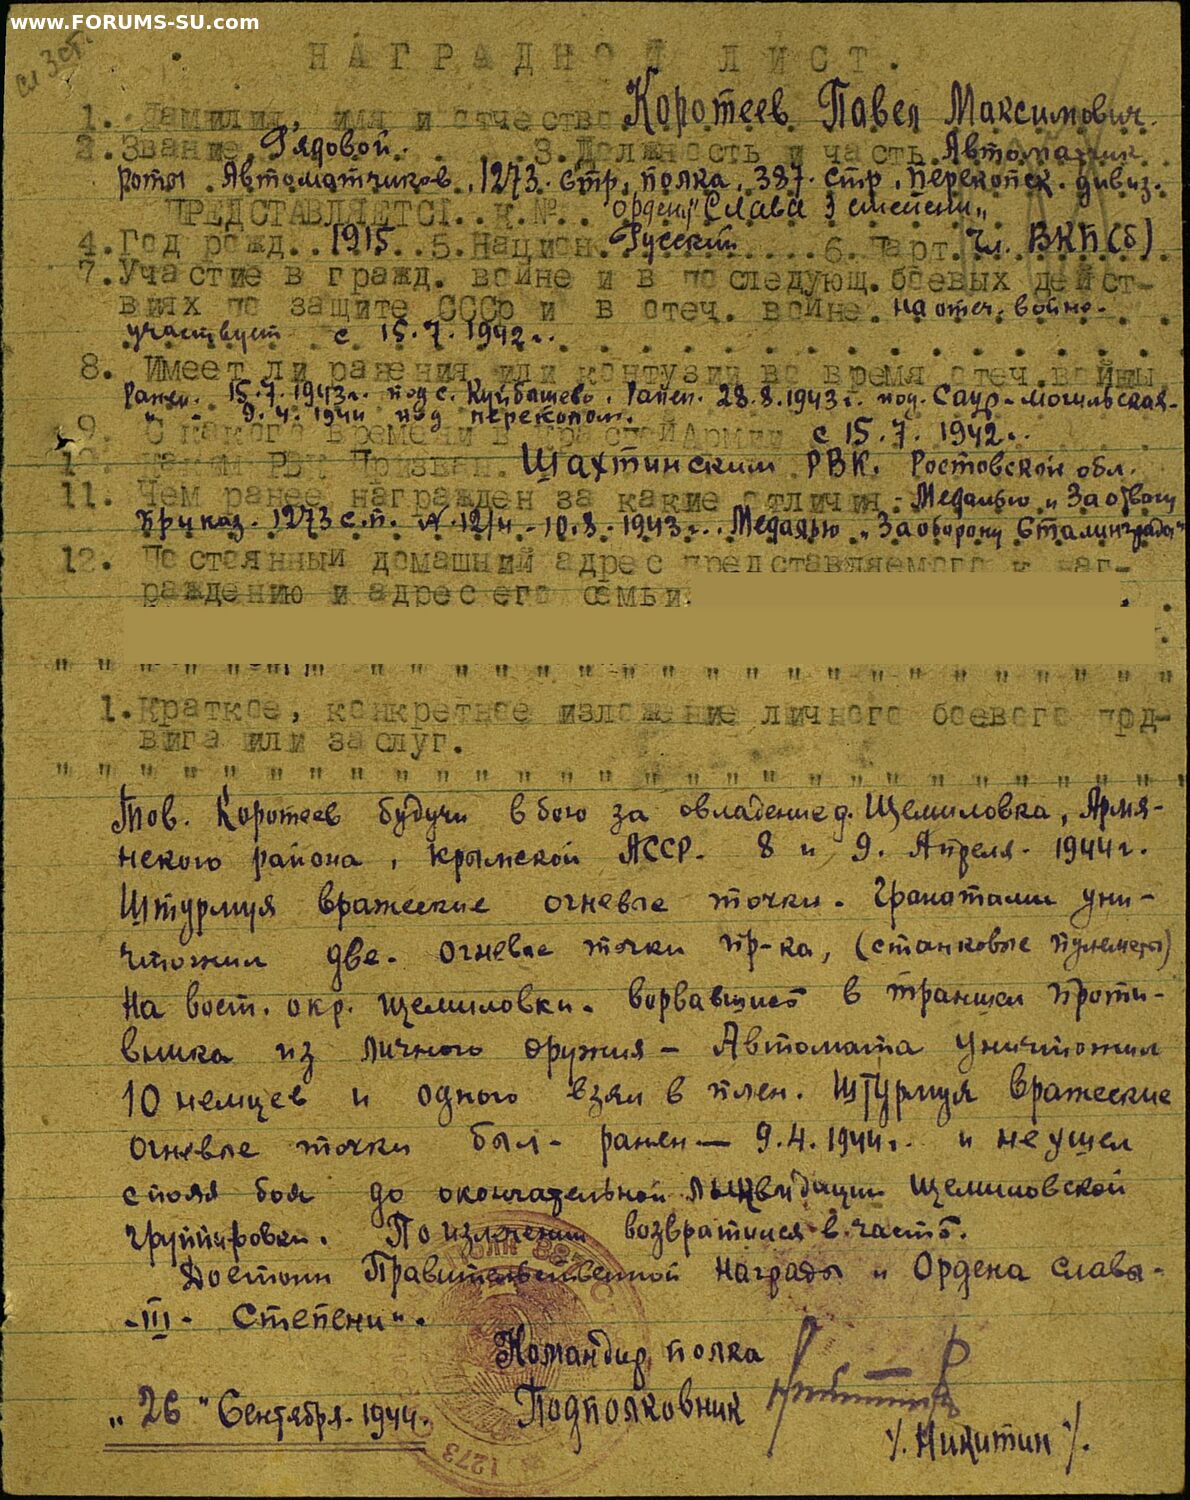 www.FORUMS-SU.com
сл 3 ст.
НАГРАДНОЙ ЛИСТ.
1. Фамилия, имя и отчество Коротеев Павел Максимович.
2. Звание Рядовой. 3. Должность и часть Автоматчик
роты Автоматчиков, 1273. Стр. полка, 387. Стр. Перекопск. дивиз.
ПРЕДСТАВЛЯЕТСЯ..к.№.. ордену "Слава 3 степени„
4. Год рожд..1915..5. Национ. Русский 6. Парт. Чл. ВКП(б)
7. Участие в гражд. войне и в последующ. боевых дейст-
виях по защите СССР и в отеч. войне. на отеч. войне.
участвует с 15.7.1942г.
8. Имеет ли ранения или контузии во время отеч. войны
Ранен. 15.7.1943г. под с. Куйбышево. Ранен. 28.8.1943г. под. Саур-могильская-
" " 9.4.1944 под перекопом.
9. С какого времени в Красной Армии с 15.7.1942г.
10. Каким РВК Призван. Шахтинским РВК. Ростовской обл.
11. Чем ранее награжден за какие отличия. Медалью „За отвагу
Приказ. 1273 с.п. № 12/н - 10.8.1943г.. Медалью „За оборону Сталинграда"
12. Постоянный домашний адрес представляемого к наг-
раждению и адрес его семьи.
1. Краткое, конкретное изложение личного боевого под-
вига или заслуг.
Тов. Коротеев будучи в бою за овладение д. Щемиловка, Армя-
нского района, Крымской АССР. 8 и 9. Апреля. 1944г.
Штурмуя вражеские огневые точки. Гранатами уни-
чтожил две. огневые точки пр-ка, (станковые пулеметы)
На вост. окр. Щемиловки. Ворвавшись в траншеи проти-
вника из личного оружия – Автомата уничтожил
10 немцев и одного взял в плен. Штурмуя вражеские
огневые точки был - ранен — 9.4.1944г. и не ушел
с поля боя до окончательной ликвидации Щемиловской
группировки. По излечении возвратился в часть.
Достоин Правительственной Награды „ Ордена Слава-
-III- Степени".
Командир полка
Подполковник
„26" Сентября. 1944г.
/. Никитин /.
1273